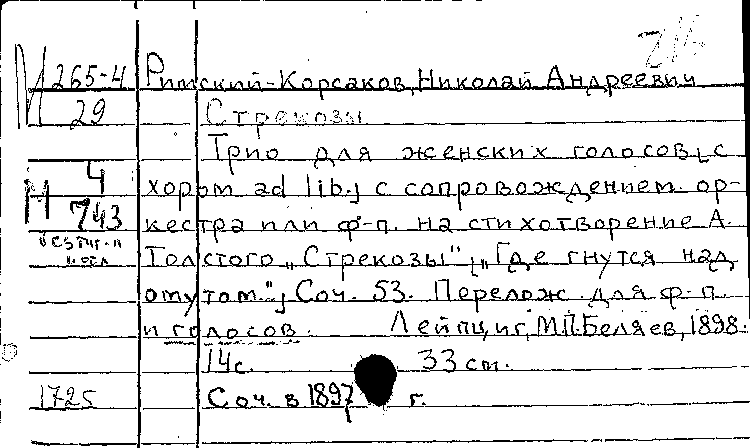 М 265-4 Римский-Корсаков, Николай Андреевич
29 Стрекозы
Трио для женских голосов [с
4 хором ad lib.] с сопровождением ор-
Н 743 кестра или ф-п. на стихотворение А.
Толстого „Стрекозы" [„Где гнутся над
омутом"] Соч. 53. Перелож. для ф-п.
и голосов. Лейпциг, М.П.Беляев, 1898.
14с. 33 cm.
1725 Соч. в 1897 г.